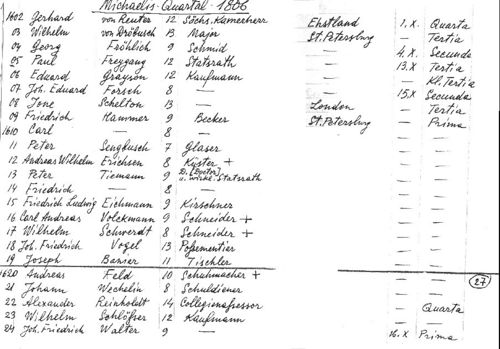 Michaelis-Quartal-1806
1602 Gerhard von Reuter 12 Sächs. Kamerherr Ehstland 1.X. Quarta
03 Wilhelm von Dröbusch 13 Major St. Petersburg — Tertia
04 Georg Fröhlich 9 Schmid — 4.X. Secunda
05 Paul Freygang 12 Statsrath — 13.X Tertia
06 Eduard Grayson 12 Kaufmann — Kl. Tertia
07 Joh. Eduard Forsch 8 — — 15.X Secunda
08 Jone Schelton 13 — London — Tertia
09 Friedrich Kammer 9 Becker St. Petersburg — Prima
1610 Carl — 8 — — — —
11 Peter Sengbusch 7 Glaser — — —
12 Andreas Wilhelm Erichsen 8 Küster + — — —
13 Peter Tiemann 9 D. (Doctor) u. wirkl. Statsrath — — —
14 Friedrich — 8 — — — —
15 Friedrich Ludwig Eichmann 9 Kirschner — — —
16 Carl Andreas Volckmann 9 Schneider + — — —
17 Wilhelm Schwerdt 8 Schneider + — — —
18 Joh. Friedrich Vogel 13 Posementier — — —
19 Joseph Banier 11 Tischler — — —
1620 Andreas Feld 10 Schuhmacher + — — — 27
21 Johann Wechelin 8 Schuldiener — — —
22 Alexander Reinholdt 14 Collegienassessor — — Quarta
23 Wilhelm Schlösser 12 Kaufmann — — —
24 Joh. Friedrich Walter 9 — — 16.X Prima